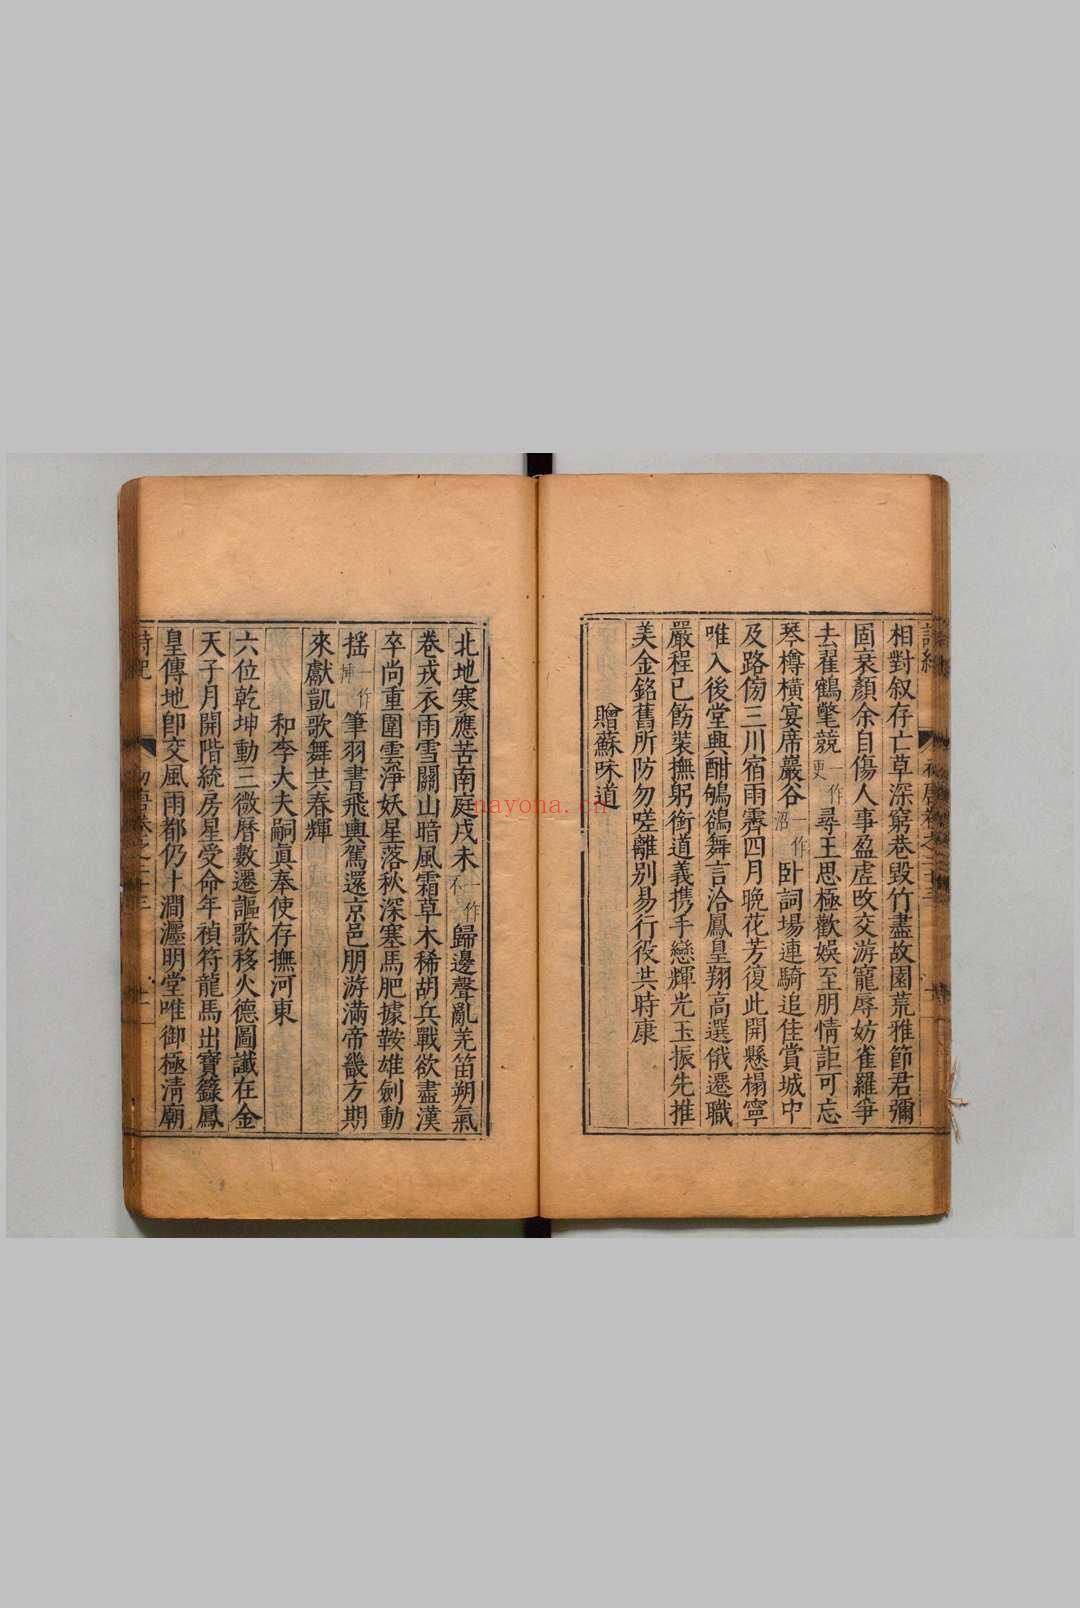 相對叙存亡草深窮巷毀竹盡故園荒雅節君彌
固衰顏余自傷人事盈虛改交游寵辱妨雀羅爭
去翟鶴氅競一作更尋王思極歡娛至朋情詎可忘
琴樽橫宴席巖谷一作沼卧詞場連騎追佳賞城中
及路傍三川宿雨霽四月晚花芳復此開懸榻寧
唯入後堂興酣鴝鵒舞言洽鳳皇翔高選俄遷職
嚴程已飭裝撫躬銜道義携手戀輝光玉振先推
美金銘舊所防勿嗟離別易行役共時康
贈蘇味道
北地寒應苦南庭戌未一作不歸邊聲亂羌笛朔氣
卷戎衣雨雪關山暗風霜草木稀胡兵戰欲盡漢
卒尚重圍雲淨妖星落秋深塞馬肥據鞍雄劍動
揺一作插筆羽書飛輿駕還京邑朋游滿帝畿方期
來獻凱歌舞共春輝
和李大夫嗣眞奉使存撫河東
六位乾坤動三微曆數遷謳歌移火德圖讖在金
天子月開階統房星受命年禎符龍馬出寶籙鳳
皇傳地卽交風雨都仍卜澗瀍明堂唯御極淸廟
詩紀
初唐卷之二十三
十一
nayona.cn